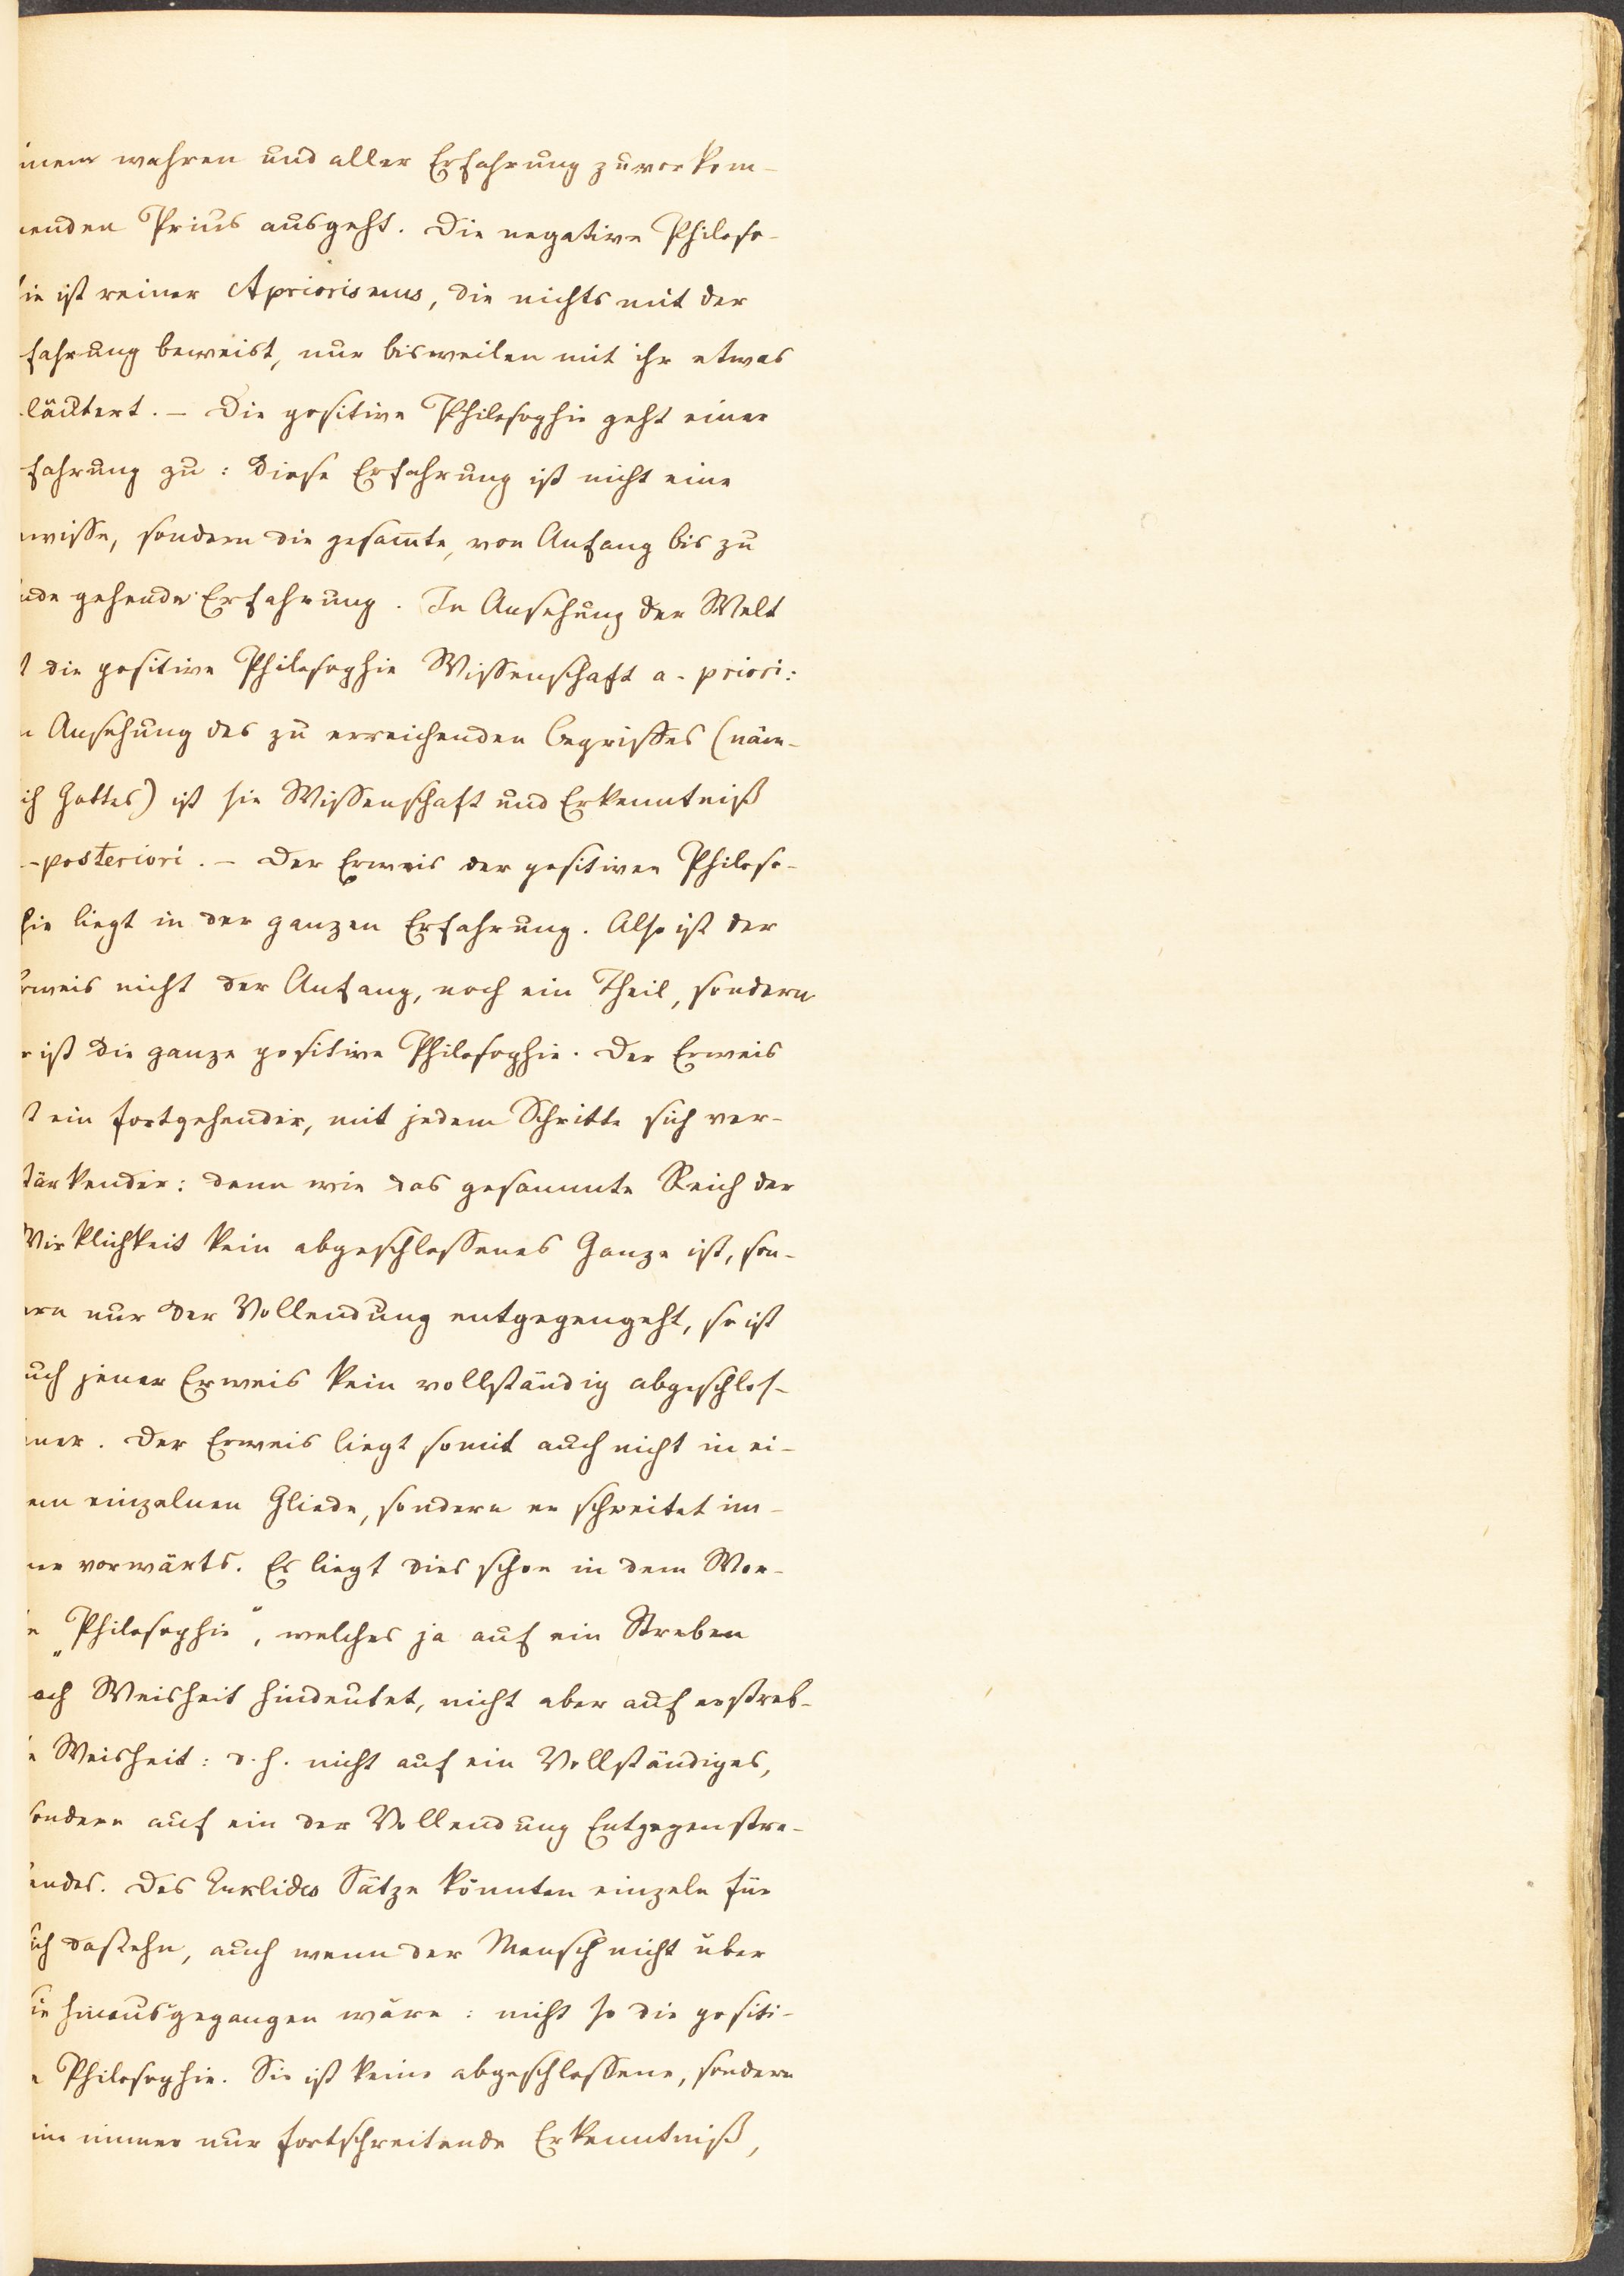 inem wahren und aller Erfahrung zuvorkom-
enden Prius ausgeht. Die negative Philoso-
ie ist reiner Apriorismus, die nichts mit der
fahrung beweist, nur bisweilen mit ihr etwas
läutert. – Die positive Philosophie geht einer
fahrung zu: diese Erfahrung ist nicht eine
wisse, sondern die gesam̅te, von Anfang bis zu
nde gehende Erfahrung. In Ansehung der Welt
t die positive Philosophie Wissenschaft a-priori:
n Ansehung des zu erreichenden Begriffes (näm-
ich Gottes) ist sie Wissenschaft und Erkenntniß
-posteriori. – Der Erweis der positiven Philoso-
hie liegt in der ganzen Erfahrung. Also ist der
rweis nicht der Anfang, noch ein Theil, sondern
r ist die ganze positive Philosophie. Der Erweis
st ein fortgehender, mit jedem Schritte sich ver-
tärkender: denn wie das gesammte Reich der
Wirklichkeit kein abgeschlossenes Ganze ist, son-
ern nur der Vollendung entgegengeht, so ist
uch jener Erweis kein vollständig abgeschlos-
ener. Der Erweis liegt somit auch nicht in ei-
em einzelnen Gliede, sondern er schreitet im-
er vorwärts. Es liegt dies schon in dem Wor-
e „Philosophie“, welches ja auf ein Streben
ach Weisheit hindeutet, nicht aber auf erstreb-
e Weisheit: d. h. nicht auf ein Vollständiges,
sondern auf ein der Vollendung Entgegenstre-
endes. Des Euklides Sätze könnten einzeln für
ich dastehn, auch wenn der Mensch nicht über
ie hinausgegangen wäre: nicht so die positi-
e Philosophie. Sie ist keine abgeschlossene, sondern
ine immer nur fortschreitende Erkenntniß,